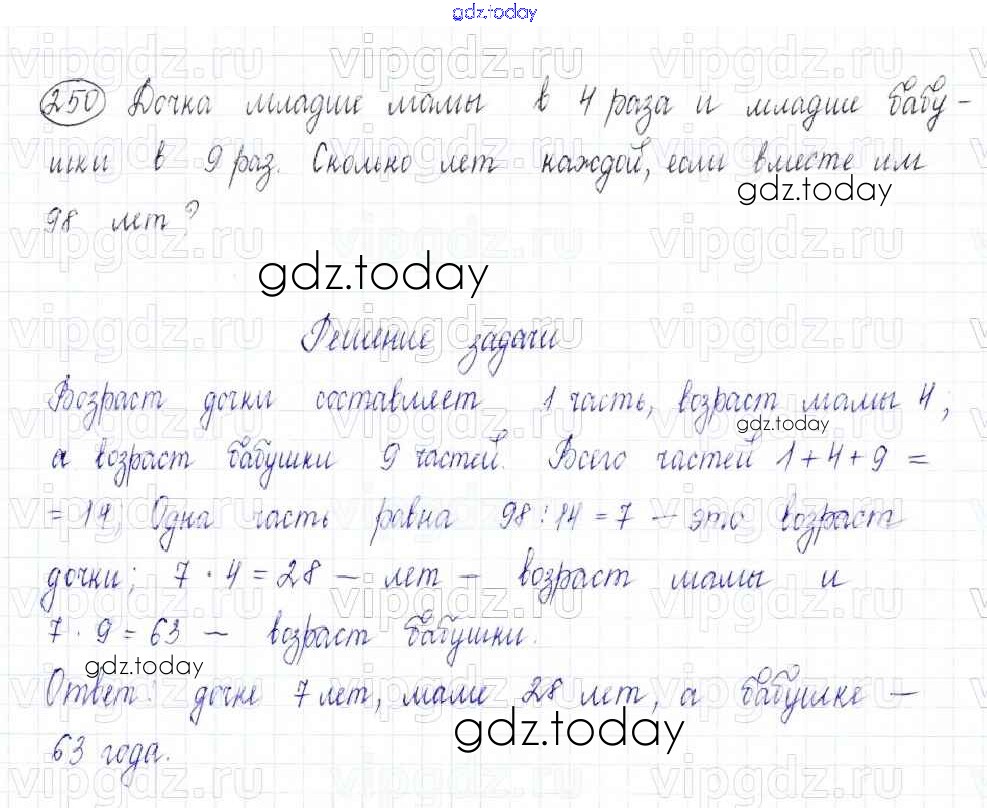 gdz.today
250 Дочка младше мамы в 4 раза и младше бабу-
шки в 9 раз. Сколько лет каждой, если вместе им
gdz.today
98 лет?
gdz.today
Решение задачи
Возраст дочки составляет 1 часть, возраст мамы 4;
gdz.today
а возраст бабушки 9 частей. Всего частей 1+4+9=
= 14; Одна часть равна 98:14=7 – это возраст
дочки; 7·4=28 – лет – возраст мамы и
7·9=63 – возраст бабушки.
gdz.today
Ответ: дочке 7 лет, маме 28 лет, а бабушке –
gdz.today
63 года.
vipgdz.ru